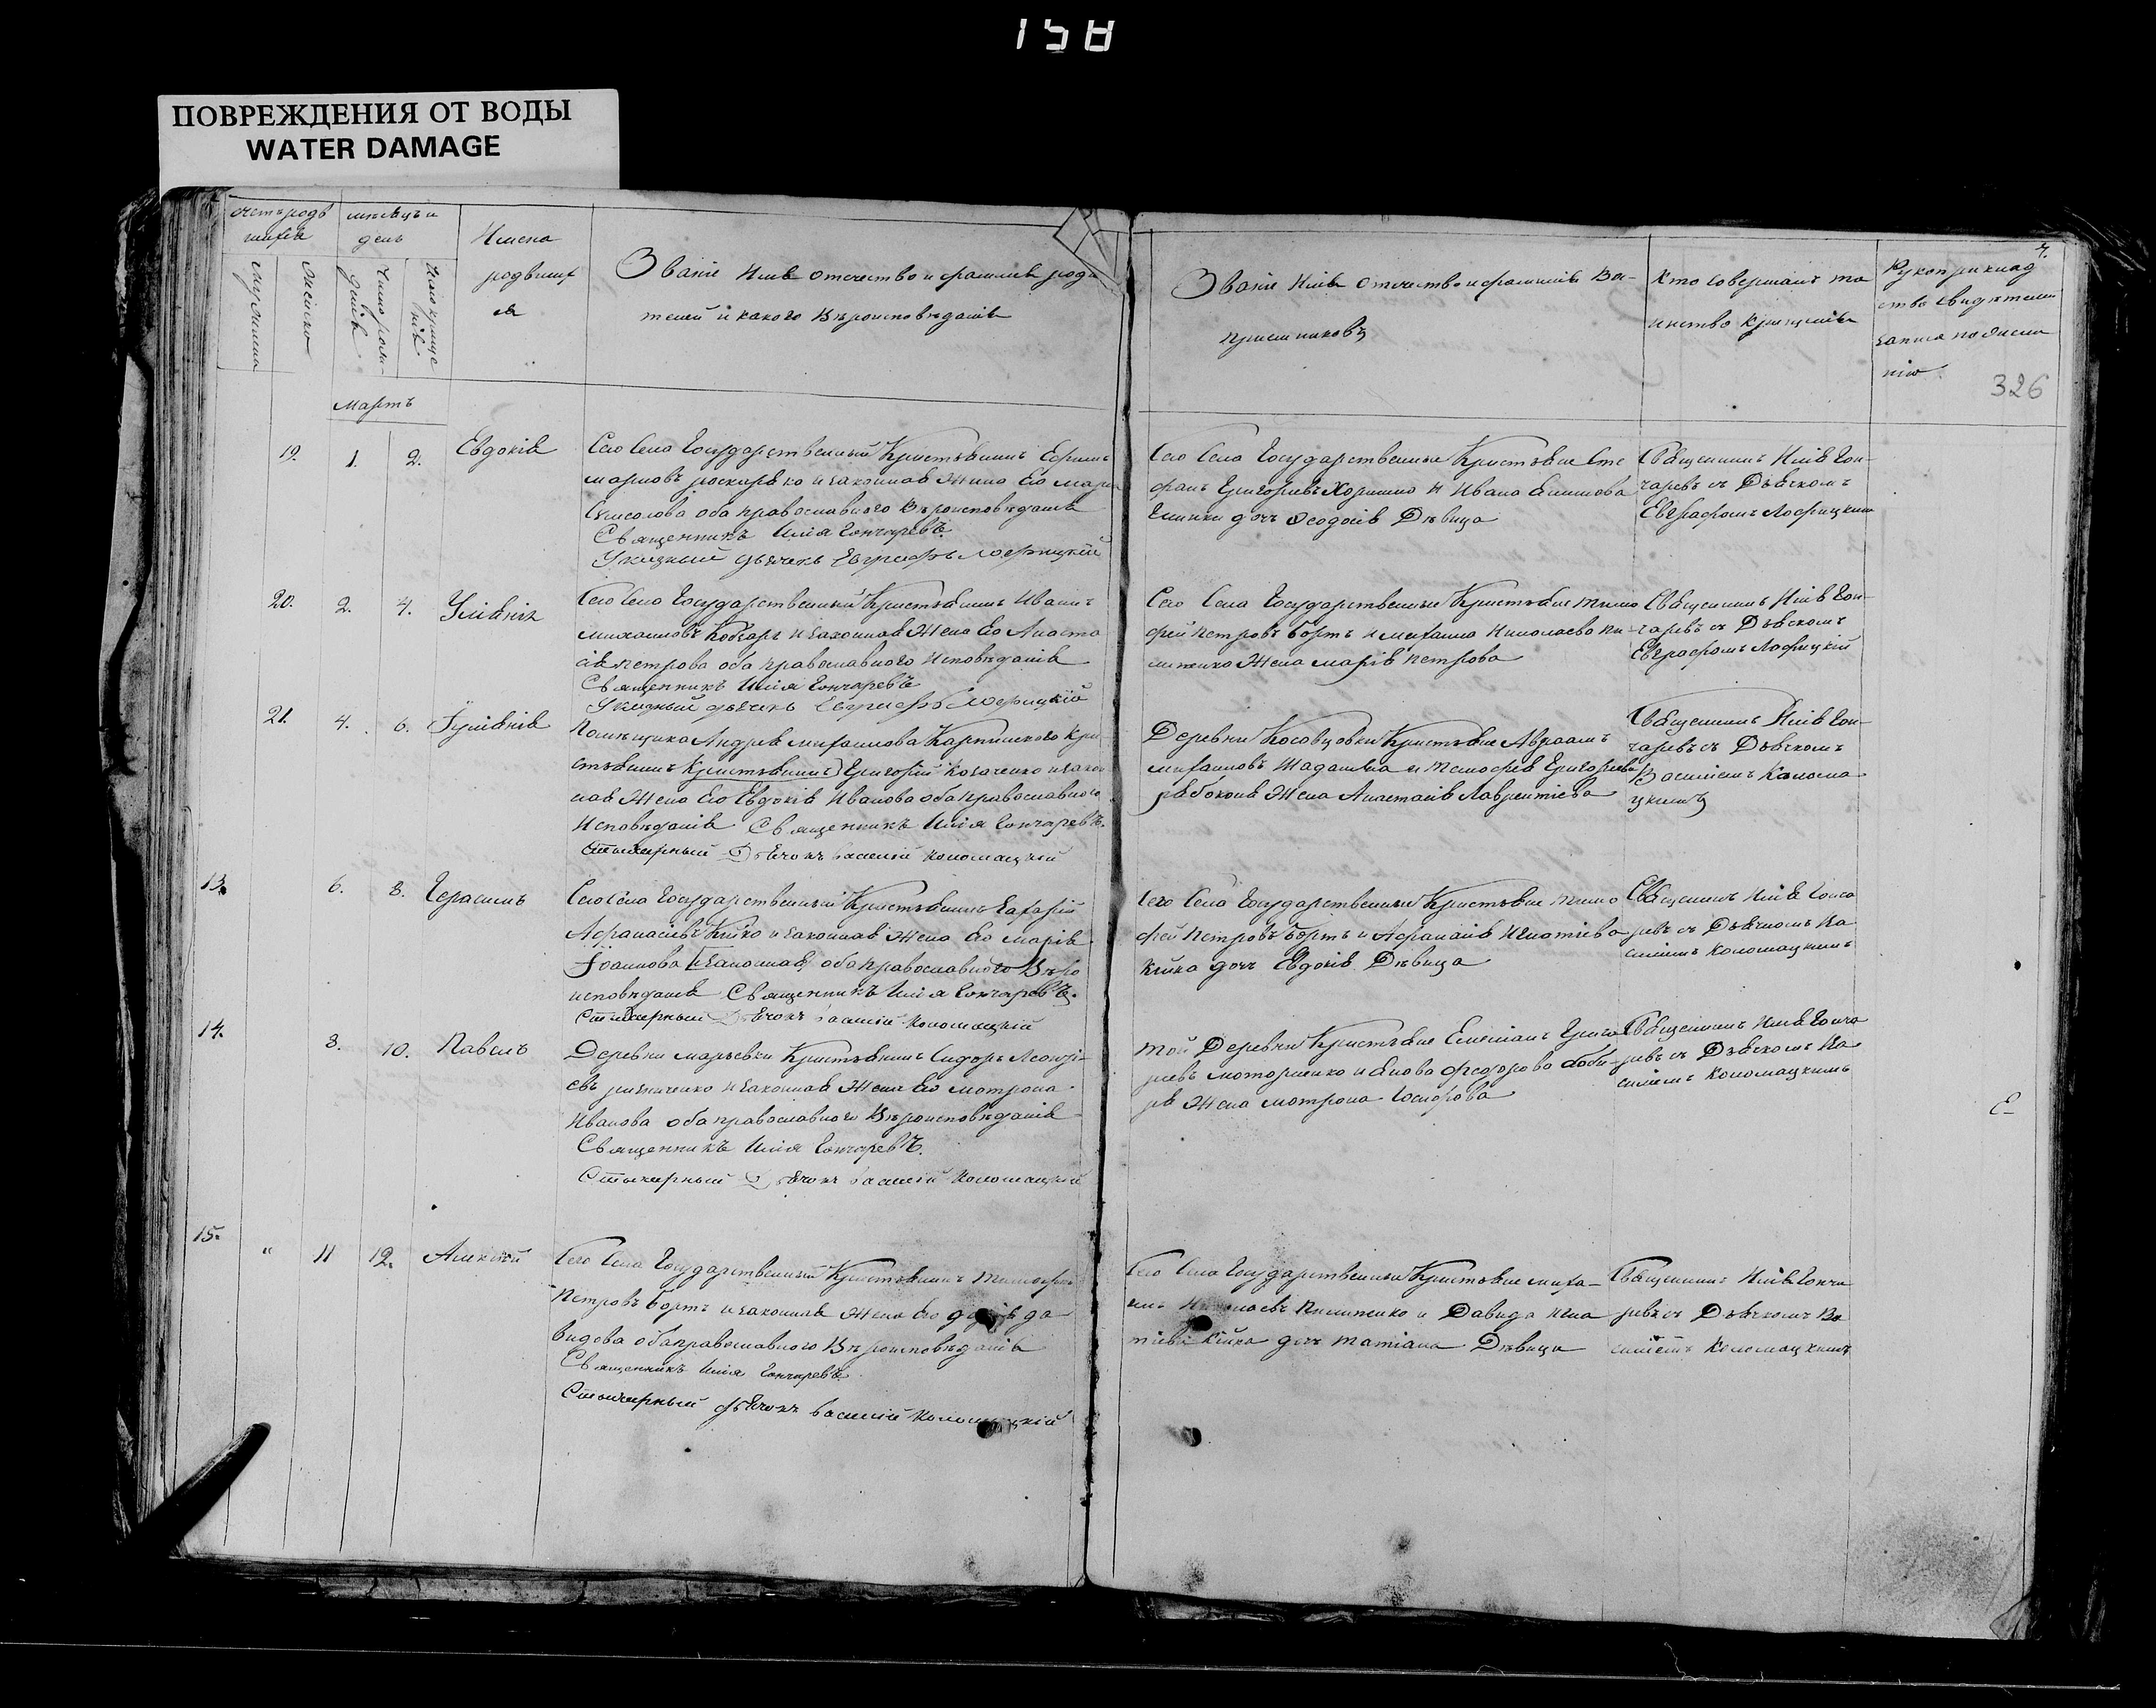 158
ПОВРЕЖДЕНИЯ ОТ ВОДЫ
WATER DAMAGE
мѣсяцъ и
день
Имена
Званіе Имя отечество и фамилія роди
телей и какого Вѣроисповѣданія
Званіе Имя отечество и фамилія Во-
пріемниковъ
Кто совершалъ та
инство крещенія
Рукоприклад
ство свидѣтелей
326
Мартъ
19. 1. 2. Евдокія
Сего Села Государственный Крестьянинъ Ефимъ
и законная Жена Его Марія
оба православного Вѣроисповѣданія
Священникъ Илія Гончаревъ.
Указный дьячекъ Евграфъ Лофицкій
Сего Села Государственные Крестьяне Сте
фанъ Григорьевъ Хоришко и Ивана
дочь Феодосія Дѣвица
Священникъ Илія Гон-
чаревъ съ Дьячкомъ
Евграфомъ Лофицким
20. 2. 4. Уліянія
Сего Села Государственный Крестьянинъ Иванъ
михаиловъ Кобзарь и законная Жена Его Анаста
сія петрова оба православного исповѣданія
Священникъ Илія Гончаревъ
Указный дьячекъ Евграфъ Лофицкій
Сего Села Государственные Крестьяне тимо
фей петровъ бортъ и михаила николаева пи-
липенка Жена марія петрова
Священникъ Илія Гон-
чаревъ съ Дьячкомъ
Евграфомъ Лофицкій
21. 4. 6. Іуліянія
Помѣщика Андрея михаилова Карпинского Кре
стьянинъ Крестьянинъ) Григорій Козаченко и закон
ная Жена Его Евдокія Иванова оба православного
Исповѣданія Священникъ Илія Гончаревъ.
Стихарный Дьячокъ василій коломацкій
Деревни Косовцовки Крестьяне Авраамъ
михаиловъ и тимофея Григорьева
рябоконя Жена Анастасія Лаврентіева
Священникъ Илія Гон-
чаревъ съ Дьячкомъ
Василіемъ Колома
цкимъ
13. 6. 8. Герасимъ
Сего Села Государственный Крестьянинъ Захарій
Афанасіевъ Кійко и законная Жена Его марія
Іоаннова [законная] оба православного Вѣро
исповѣданія Священникъ Илія Гончаревъ.
Стихарный Дьячокъ василій коломацкій
Сего Села Государственные Крестьяне тимо
фей петровъ бортъ и Афанасія Игнатіева
Кійка дочь Евдокія Дѣвица
Священникъ Илія Гонча
ревъ съ Дьячкомъ Ва
силіемъ Коломацкимъ
14. 8. 10. Павелъ
Деревни марьевки Крестьянинъ Сидоръ Леонті-
евъ и законная Жена Его мотрона
Иванова оба православного Вѣроисповѣданія
Священникъ Илія Гончаревъ.
Стихарный Дьячокъ василій коломацкій
той Деревни Крестьяне Емеліанъ Григо
рьевъ и федорова
Жена мотрона
Священникъ Илія Гонча
ревъ съ Дьячкомъ Ва
силіемъ Коломацкимъ
15. " 11 12. Алексѣй
Сего Села Государственный Крестьянинъ тимофей
петровъ бортъ и законная Жена Его да
видова оба православного Вѣроисповѣданія
Священникъ Илія Гончаревъ
Стихарный дьячокъ василій коломацкій
Сего Села Государственные Крестьяне миха-
илъ Николаевъ пилипенко и Давида игна
тіева Кійка дочь татіана Дѣвица
Священникъ Илія Гонча
ревъ съ Дьячкомъ Ва
силіемъ Коломацкимъ